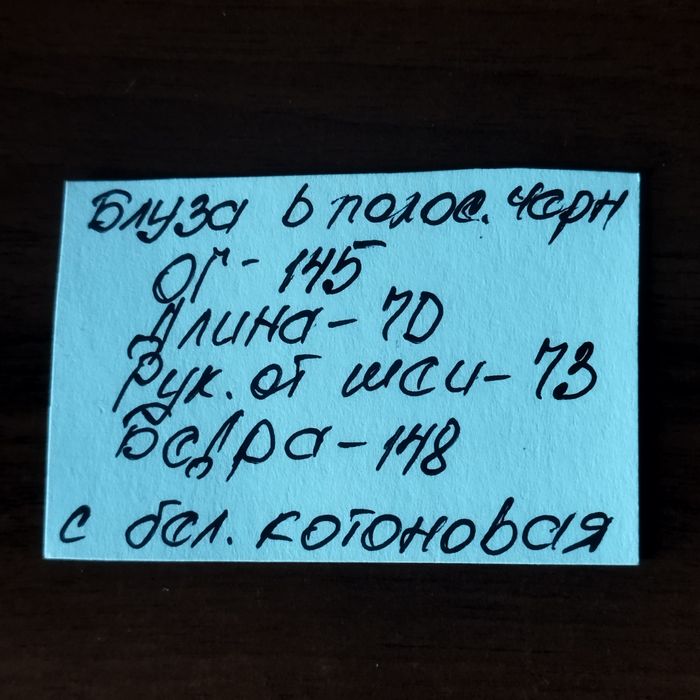 Блуза в полос. черн
ОГ - 145
Длина - 70
Рук. от шеи - 73
Бедра - 148
с бел. котоновая